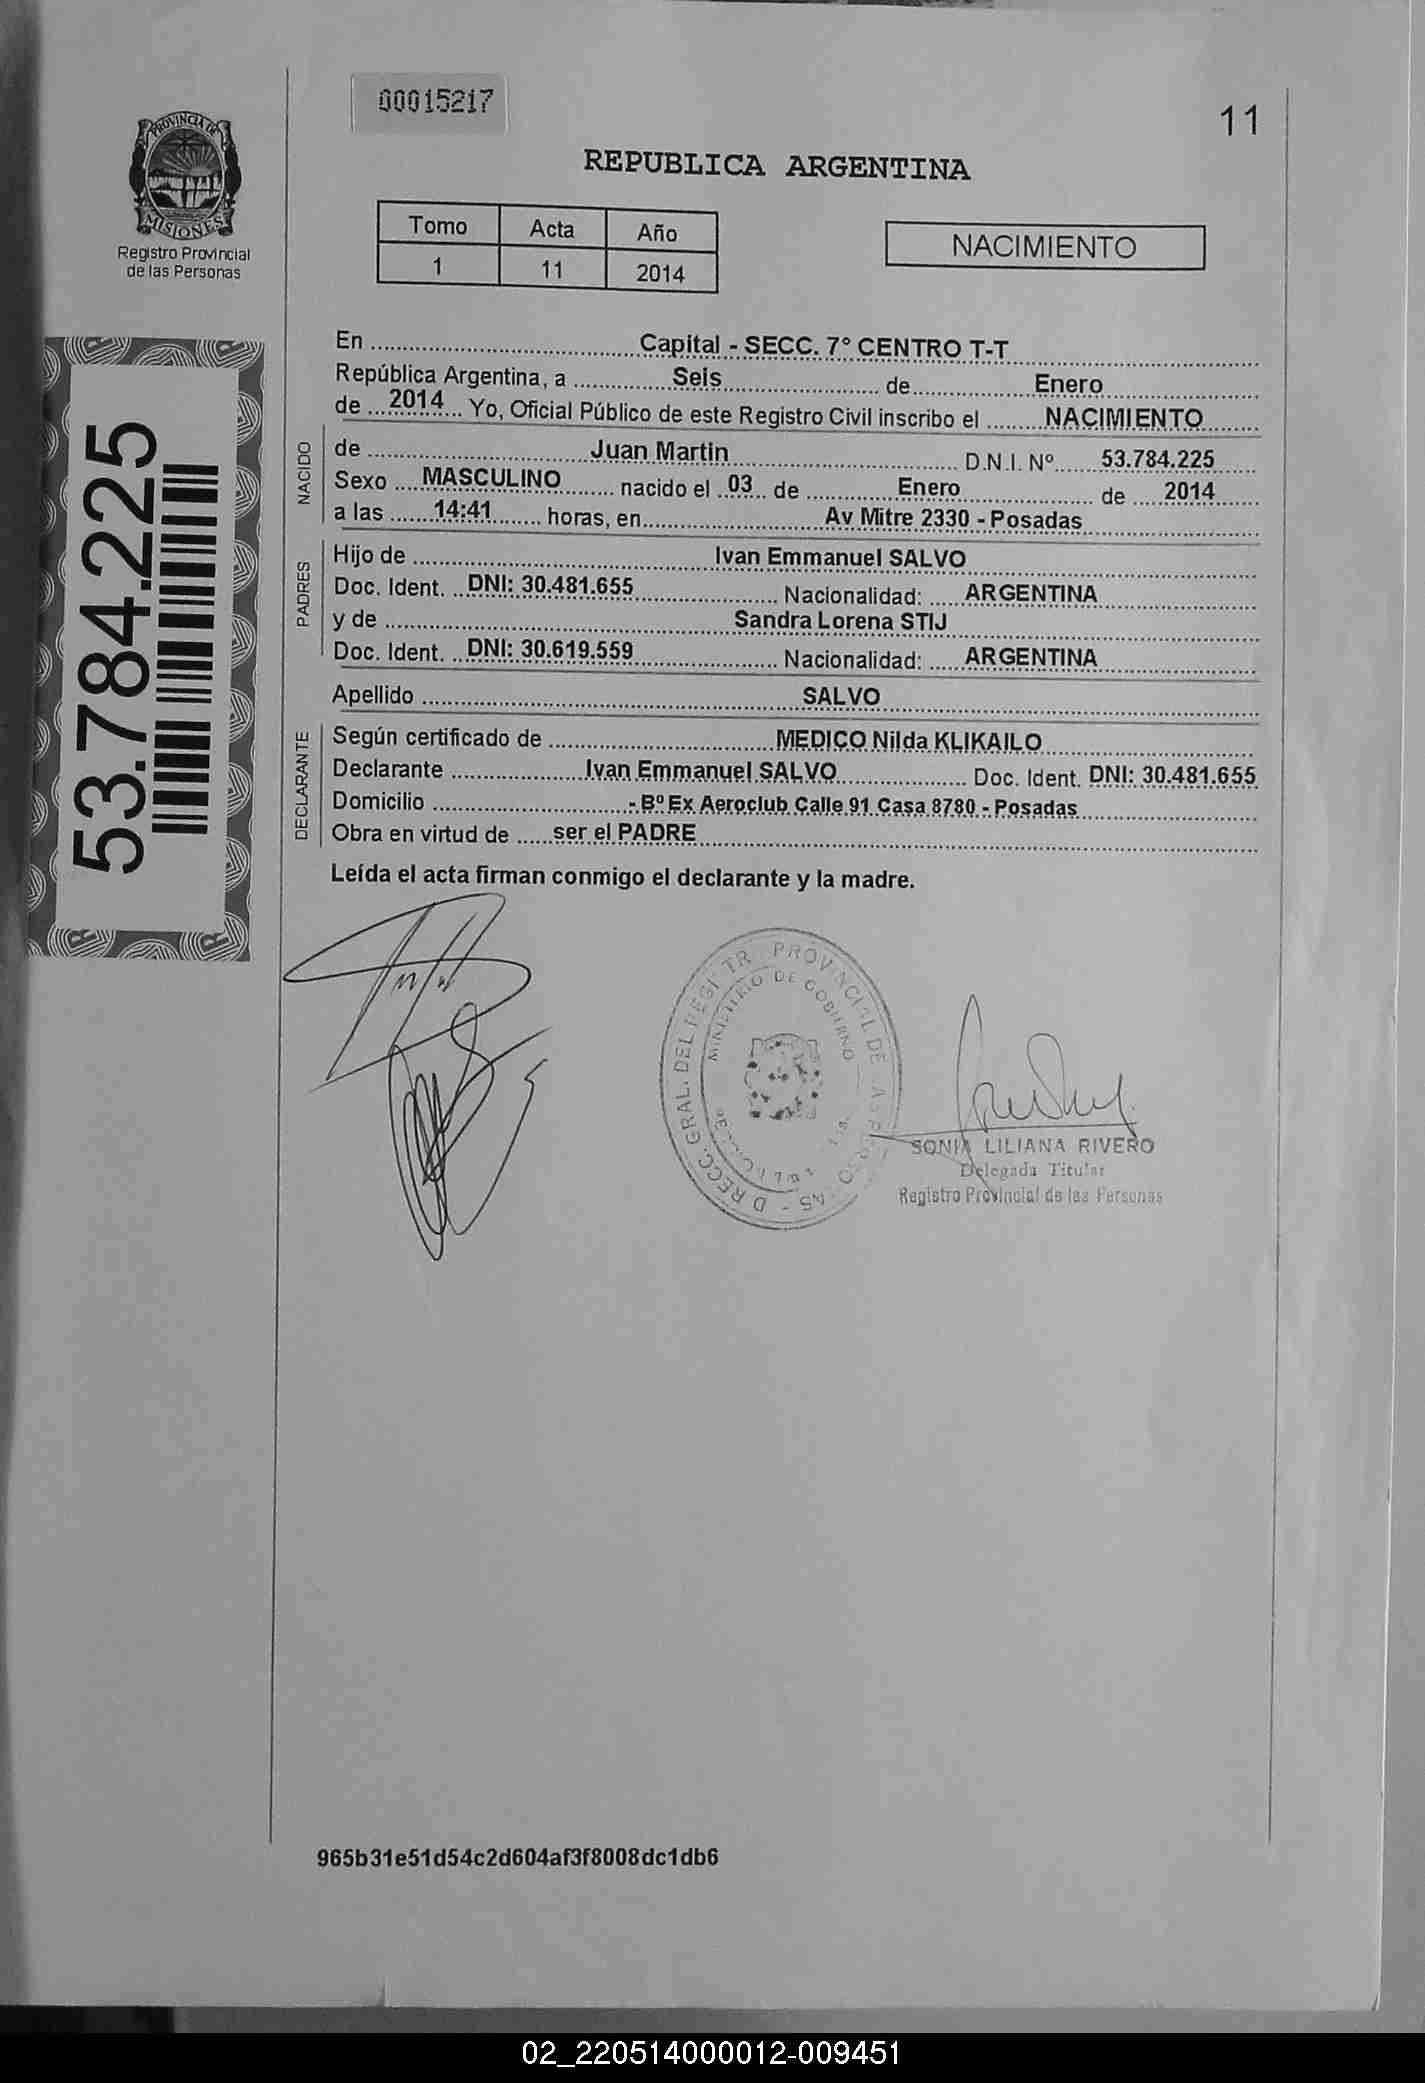 00015217
11
PROVINCIA DE
MISIONES
Registro Provincial
de las Personas
REPUBLICA ARGENTINA
Tomo Acta Año
1 11 2014
NACIMIENTO
53.784.225
En Capital - SECC. 7° CENTRO T-T
República Argentina, a Seis de Enero
de 2014 Yo, Oficial Público de este Registro Civil inscribo el NACIMIENTO
NACIDO
de Juan Martin D.N.I. Nº 53.784.225
Sexo MASCULINO nacido el 03 de Enero de 2014
a las 14:41 horas, en Av Mitre 2330 - Posadas
PADRES
Hijo de Ivan Emmanuel SALVO
Doc. Ident. DNI: 30.481.655 Nacionalidad: ARGENTINA
y de Sandra Lorena STIJ
Doc. Ident. DNI: 30.619.559 Nacionalidad: ARGENTINA
Apellido SALVO
DECLARANTE
Según certificado de MEDICO Nilda KLIKAILO
Declarante Ivan Emmanuel SALVO Doc. Ident. DNI: 30.481.655
Domicilio - Bº Ex Aeroclub Calle 91 Casa 8780 - Posadas
Obra en virtud de ser el PADRE
Leída el acta firman conmigo el declarante y la madre.
PROVINCIAL DE
MINISTERIO DE GOBIERNO
SONIA LILIANA RIVERO
Delegada Titular
Registro Provincial de las Personas
965b31e51d54c2d604af3f8008dc1db6
02_220514000012-009451